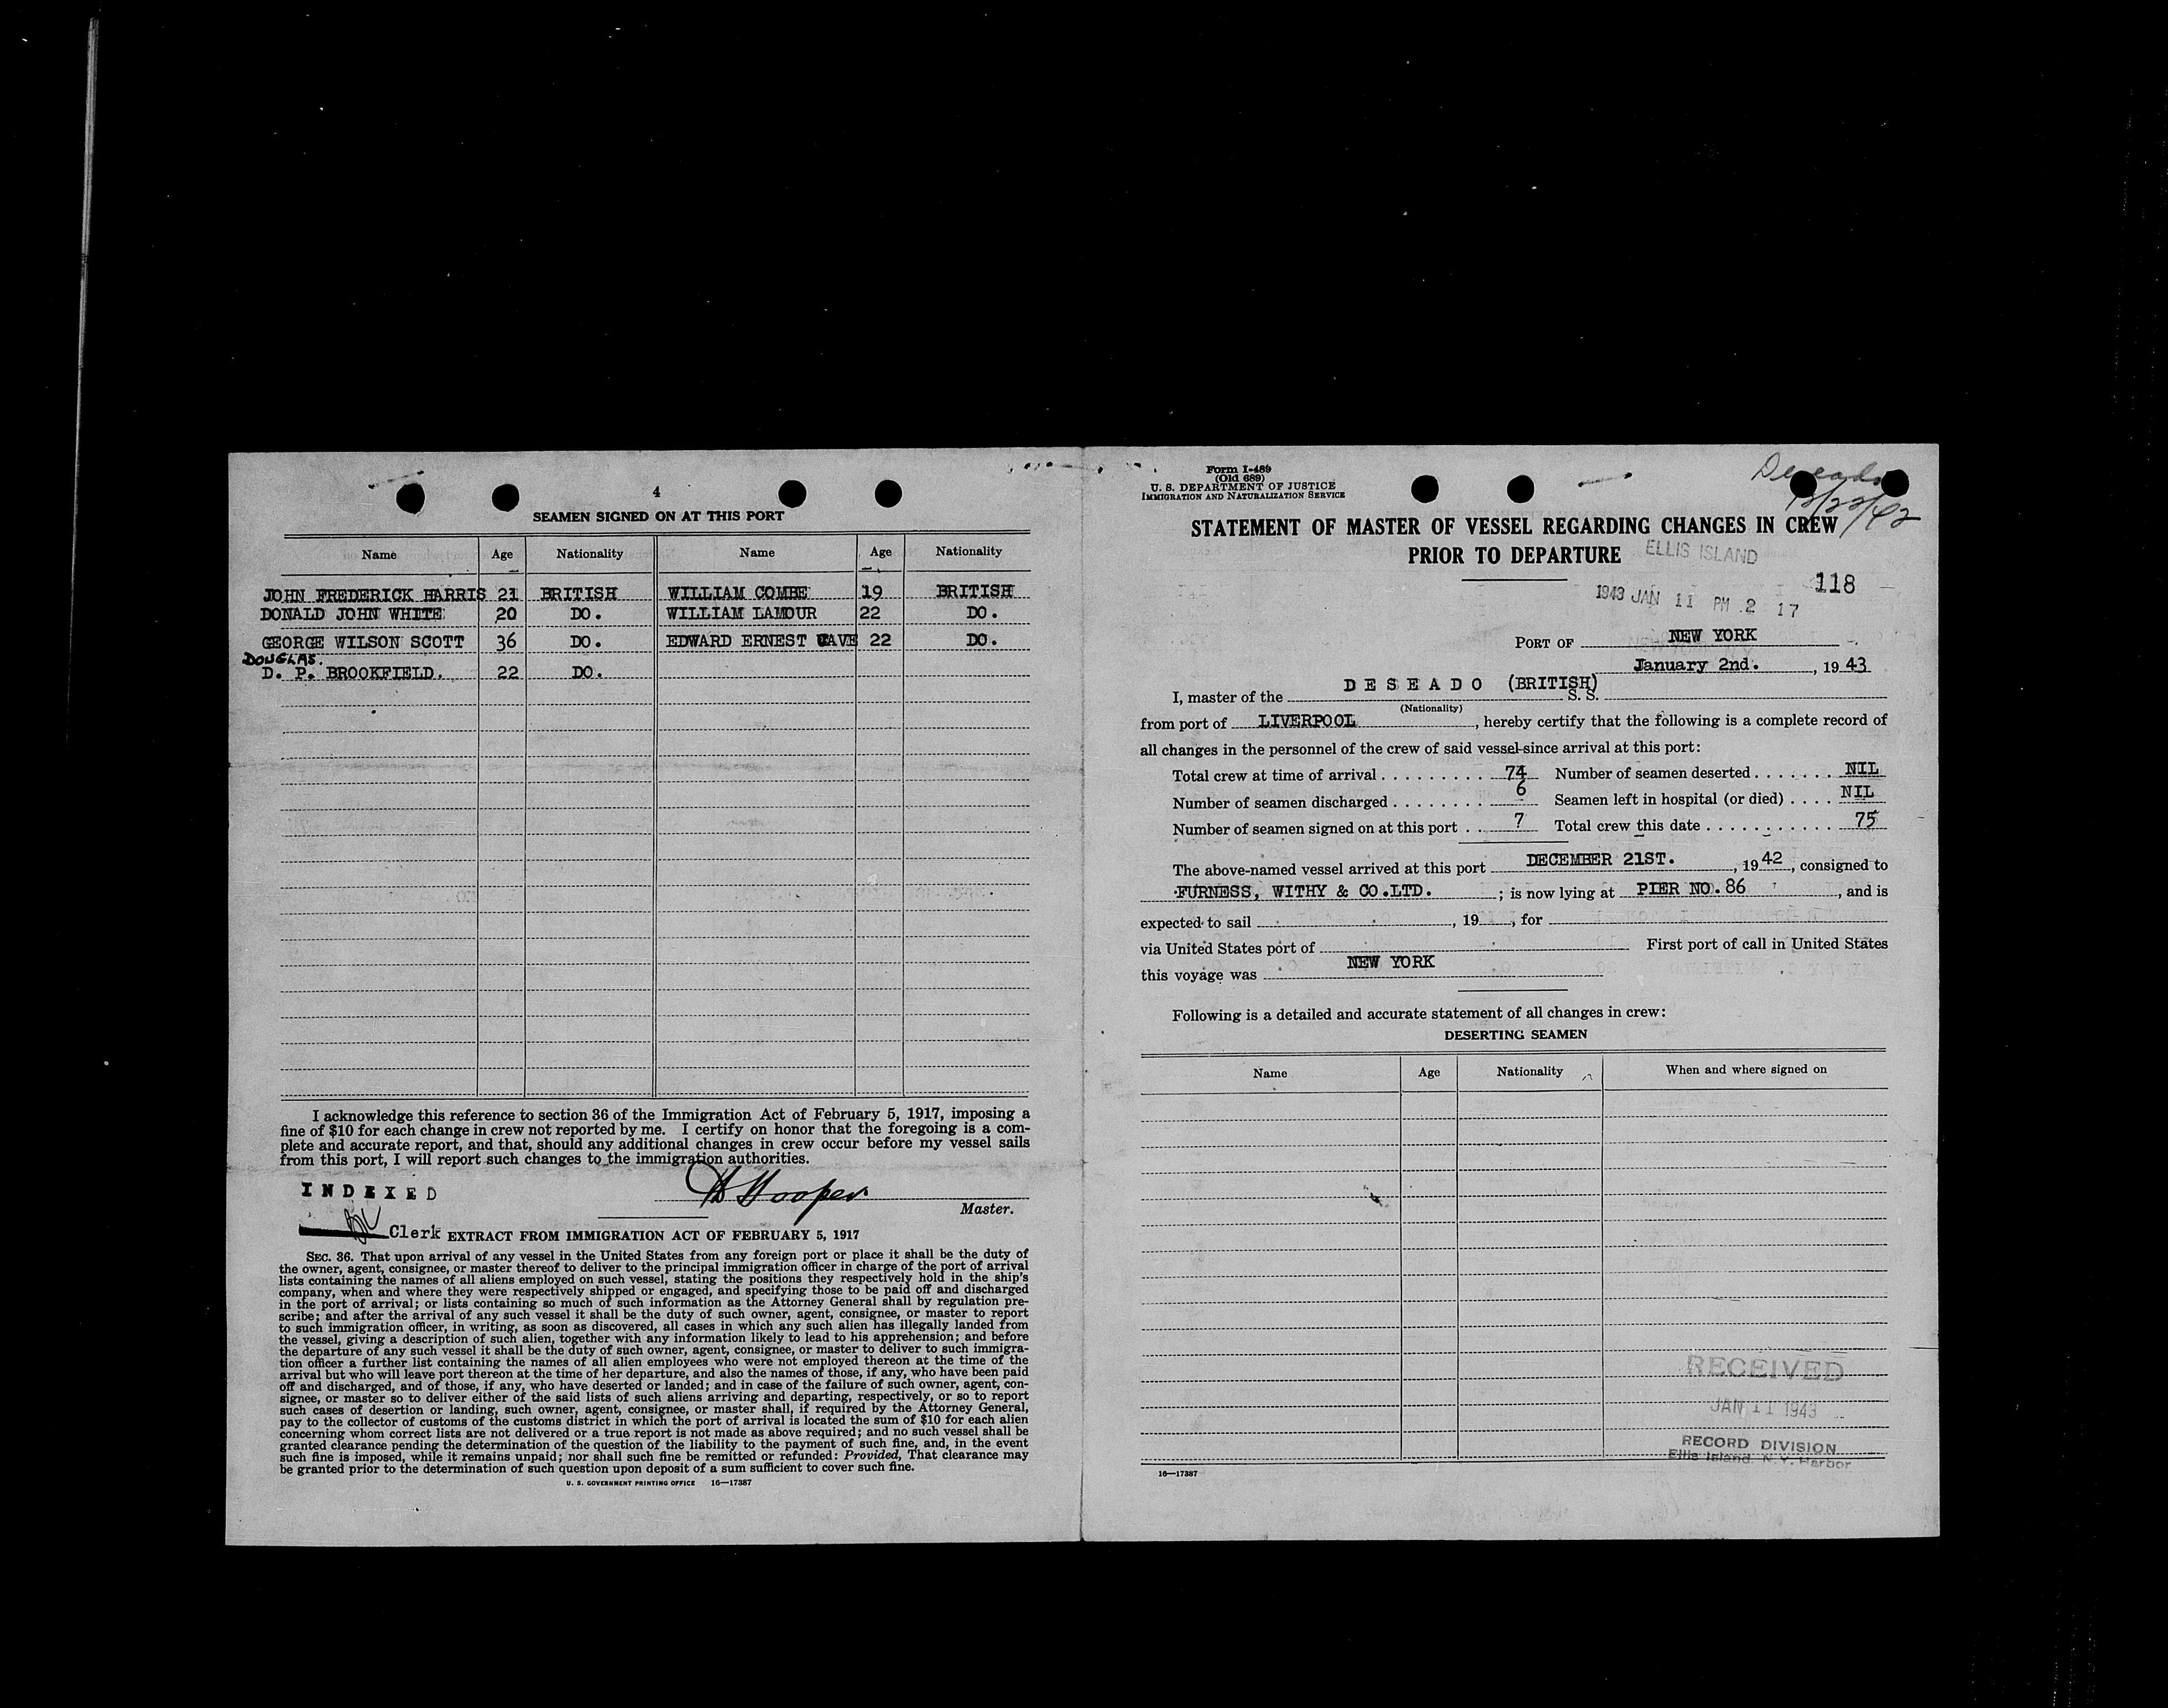 4
SEAMEN SIGNED ON AT THIS PORT
Name Age Nationality Name Age Nationality
JOHN FREDERICK HARRIS 21 BRITISH WILLIAM COMBE 19 BRITISH
DONALD JOHN WHITE 20 DO. WILLIAM LAMOUR 22 DO.
GEORGE WILSON SCOTT 36 DO. EDWARD ERNEST CAVE 22 DO.
DOUGLAS.
D. P. BROOKFIELD. 22 DO.
I acknowledge this reference to section 36 of the Immigration Act of February 5, 1917, imposing a
fine of $10 for each change in crew not reported by me. I certify on honor that the foregoing is a com-
plete and accurate report, and that, should any additional changes in crew occur before my vessel sails
from this port, I will report such changes to the immigration authorities.
INDEXED
Hooper
Master.
Clerk
EXTRACT FROM IMMIGRATION ACT OF FEBRUARY 5, 1917
SEC. 36. That upon arrival of any vessel in the United States from any foreign port or place it shall be the duty of
the owner, agent, consignee, or master thereof to deliver to the principal immigration officer in charge of the port of arrival
lists containing the names of all aliens employed on such vessel, stating the positions they respectively hold in the ship's
company, when and where they were respectively shipped or engaged, and specifying those to be paid off and discharged
in the port of arrival; or lists containing so much of such information as the Attorney General shall by regulation pre-
scribe; and after the arrival of any such vessel it shall be the duty of such owner, agent, consignee, or master to report
to such immigration officer, in writing, as soon as discovered, all cases in which any such alien has illegally landed from
the vessel, giving a description of such alien, together with any information likely to lead to his apprehension; and before
the departure of any such vessel it shall be the duty of such owner, agent, consignee, or master to deliver to such immigra-
tion officer a further list containing the names of all alien employees who were not employed thereon at the time of the
arrival but who will leave port thereon at the time of her departure, and also the names of those, if any, who have been paid
off and discharged, and of those, if any, who have deserted or landed; and in case of the failure of such owner, agent, con-
signee, or master so to deliver either of the said lists of such aliens arriving and departing, respectively, or so to report
such cases of desertion or landing, such owner, agent, consignee, or master shall, if required by the Attorney General,
pay to the collector of customs of the customs district in which the port of arrival is located the sum of $10 for each alien
concerning whom correct lists are not delivered or a true report is not made as above required; and no such vessel shall be
granted clearance pending the determination of the question of the liability to the payment of such fine, and, in the event
such fine is imposed, while it remains unpaid; nor shall such fine be remitted or refunded: Provided, That clearance may
be granted prior to the determination of such question upon deposit of a sum sufficient to cover such fine.
U. S. GOVERNMENT PRINTING OFFICE 16—17387
Form I-489
(Old 689)
U. S. DEPARTMENT OF JUSTICE
IMMIGRATION AND NATURALIZATION SERVICE
Deseado
12/22/42
STATEMENT OF MASTER OF VESSEL REGARDING CHANGES IN CREW
PRIOR TO DEPARTURE
ELLIS ISLAND
118
1943 JAN 11 PM 2 17
PORT OF NEW YORK
January 2nd., 1943
I, master of the DESEADO (BRITISH) S. S.
(Nationality)
from port of LIVERPOOL, hereby certify that the following is a complete record of
all changes in the personnel of the crew of said vessel since arrival at this port:
Total crew at time of arrival 74 Number of seamen deserted NIL
Number of seamen discharged 6 Seamen left in hospital (or died) NIL
Number of seamen signed on at this port 7 Total crew this date 75
The above-named vessel arrived at this port DECEMBER 21ST., 1942, consigned to
FURNESS, WITHY & CO.LTD.; is now lying at PIER NO. 86, and is
expected to sail , 19 , for
via United States port of First port of call in United States
this voyage was NEW YORK
Following is a detailed and accurate statement of all changes in crew:
DESERTING SEAMEN
Name Age Nationality When and where signed on
RECEIVED
JAN 11 1943
RECORD DIVISION
Ellis Island, N. Y. Harbor
16—17387